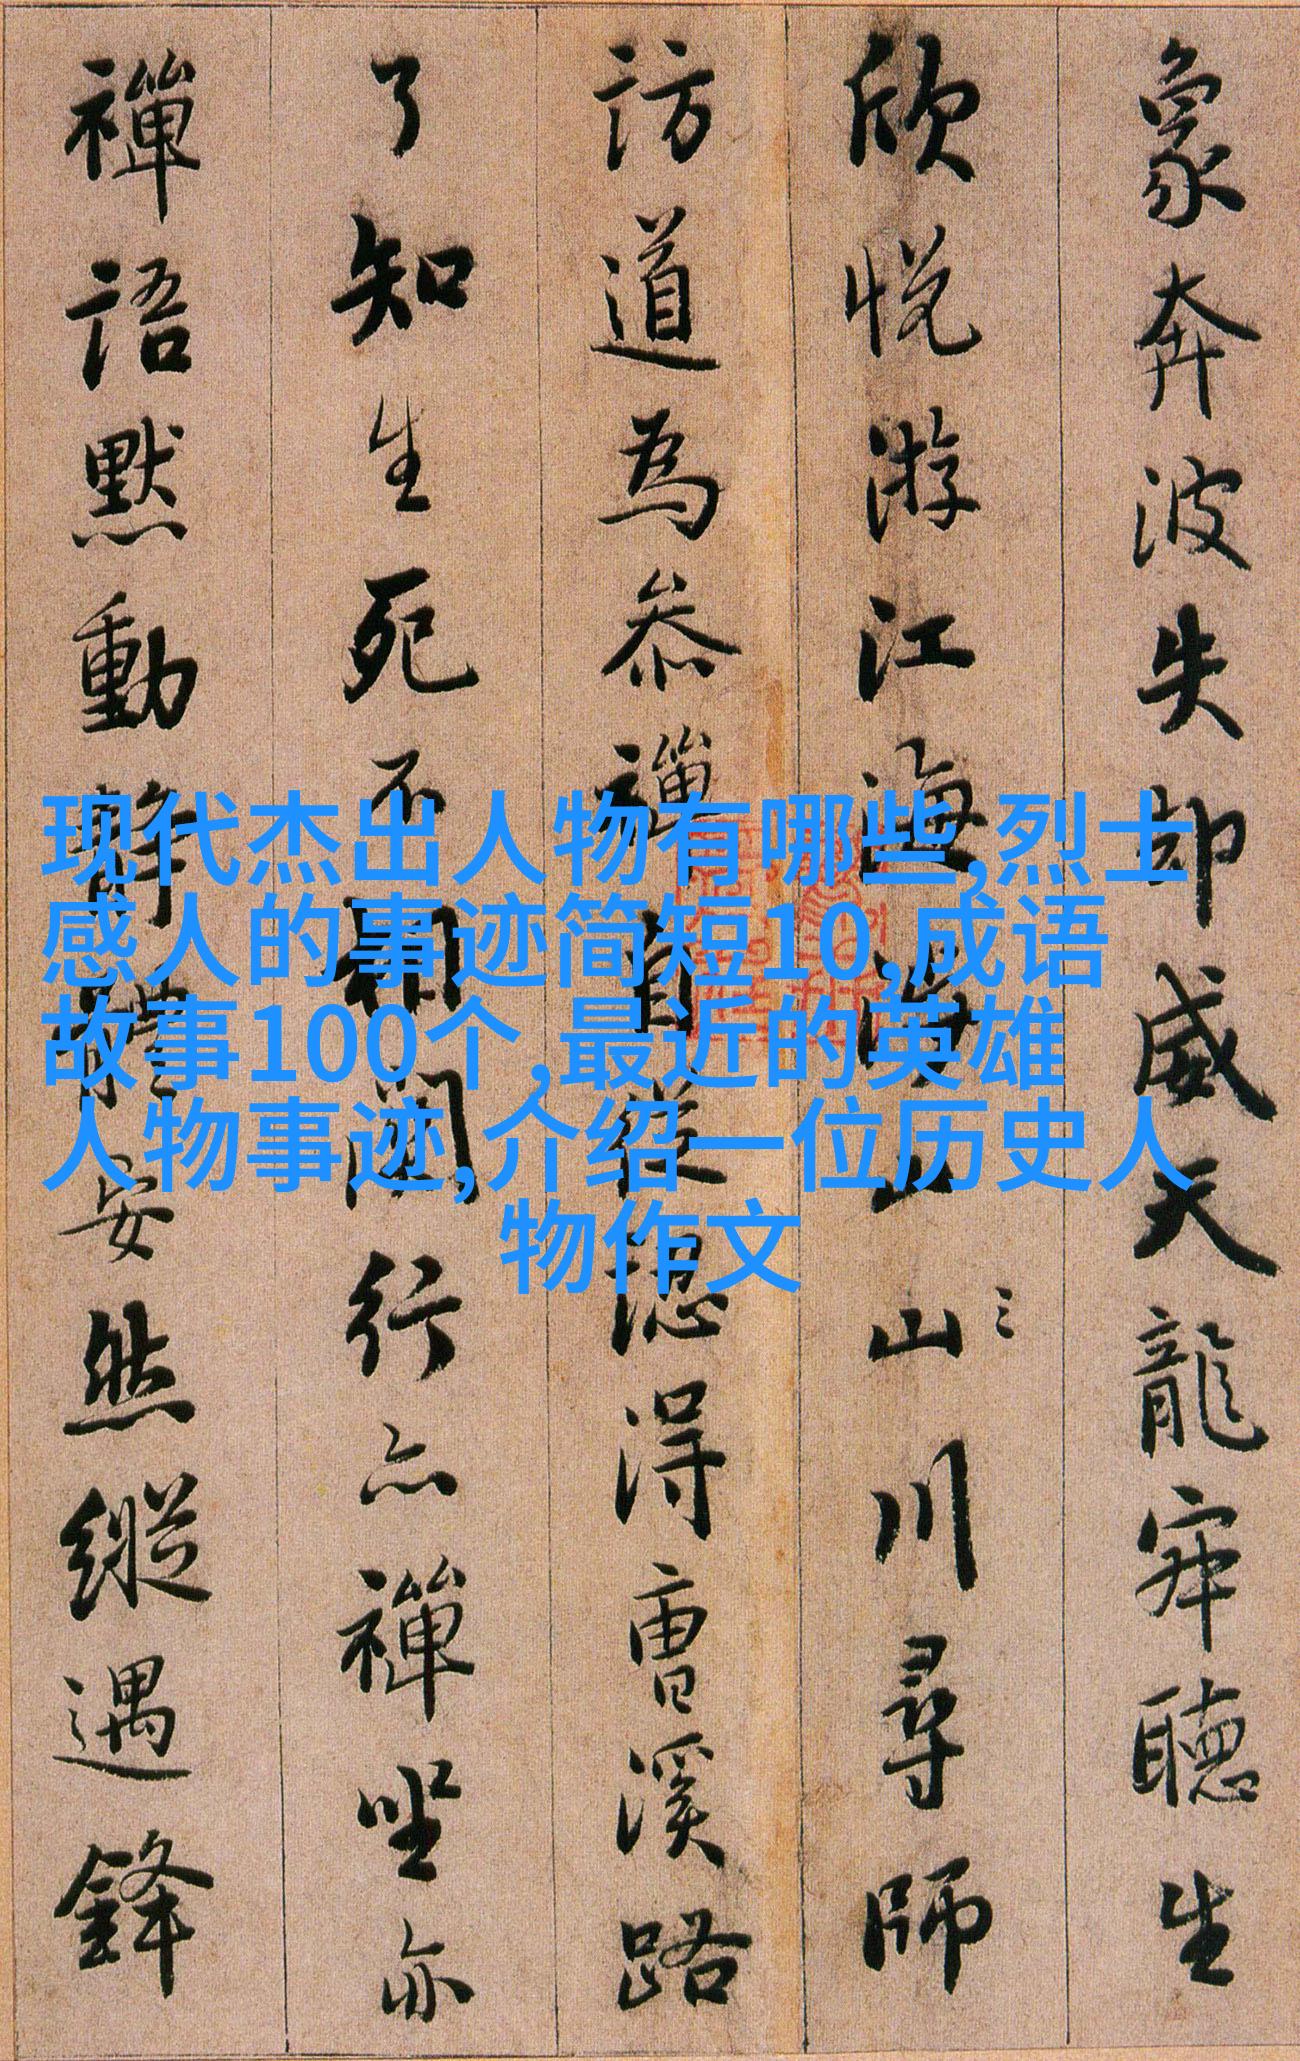 象奔波失却威天龍寂聽生
欣悅游江海涉山山川尋師
訪道為叅禪自從認得曹溪路
了知生死不相關行亦禪坐亦
禪語默動靜體安然縱遇鋒
现代杰出人物有哪些,烈士
感人的事迹简短10,成语
故事100个,最近的英雄
人物事迹,介绍一位历史人
物作文